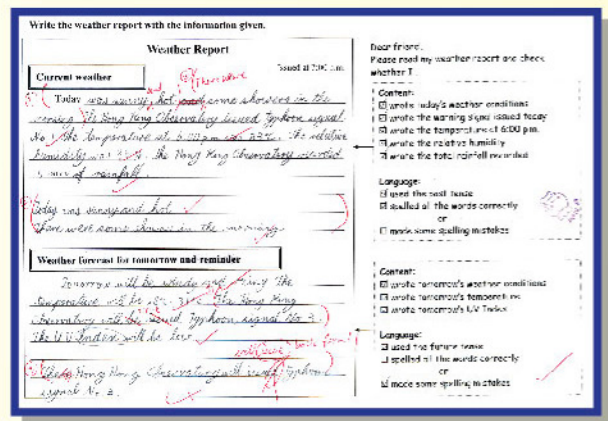 Write the weather report with the information given.
Weather Report
Issued at 7:00
Current weather
Today was sunny, hot and some showers in the
morning. The Hong Kong Observatory issued Typhoon signal
No. 1. The temperature at 6:00 pm was 33°C. The relative
humidity was . The Hong Kong Observatory recorded
of rainfall.
Today was sunny and hot.
There were some showers in the morning.
Weather forecast for tomorrow and reminder
Tomorrow will be windy and rainy. The
temperature will be . The Hong Kong
Observatory will be issued Typhoon signal No. 3.
The UV Index will be low.
Hong Kong Observatory will Typhoon
signal No. 3.
Dear friend,
Please read my weather report and check
whether I
Content:
wrote today's weather conditions
wrote the warning signal issued today
wrote the temperature at 6:00 pm.
wrote the relative humidity
wrote the total rainfall recorded
Language:
used the past tense
spelled all the words correctly
or
made some spelling mistakes
Content:
wrote tomorrow's weather conditions
wrote tomorrow's temperature
wrote tomorrow's UV Index
Language:
used the future tense
spelled all the words correctly
or
made some spelling mistakes